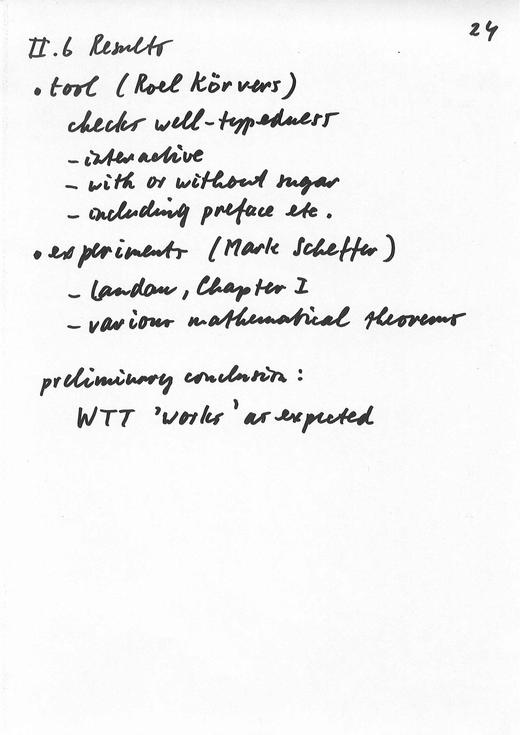 24
II.6 Results
• tool (Roel Körvers)
checks well-typedness
- interactive
- with or without sugar
- including preface etc.
• experiments (Mark Scheffer)
- Landau, Chapter I
- various mathematical theorems
preliminary conclusion:
WTT 'works' as expected